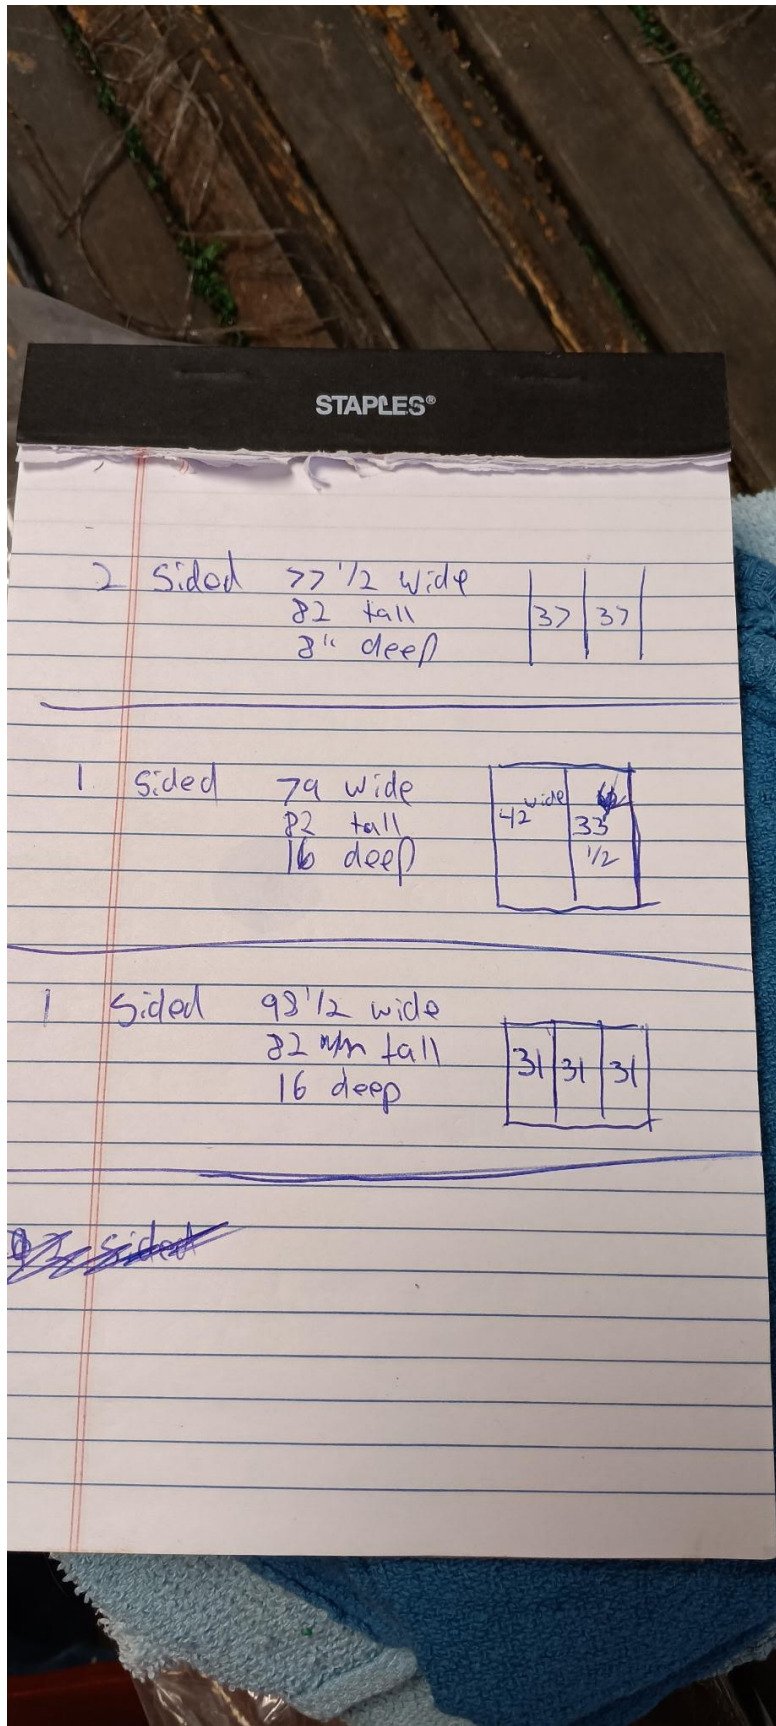 STAPLES®
2 Sided 77 1/2 wide
82 tall
8" deep
37 37
1 Sided 79 wide
82 tall
16 deep
42 wide 33 1/2
1 Sided 98 1/2 wide
82 tall
16 deep
31 31 31
sided